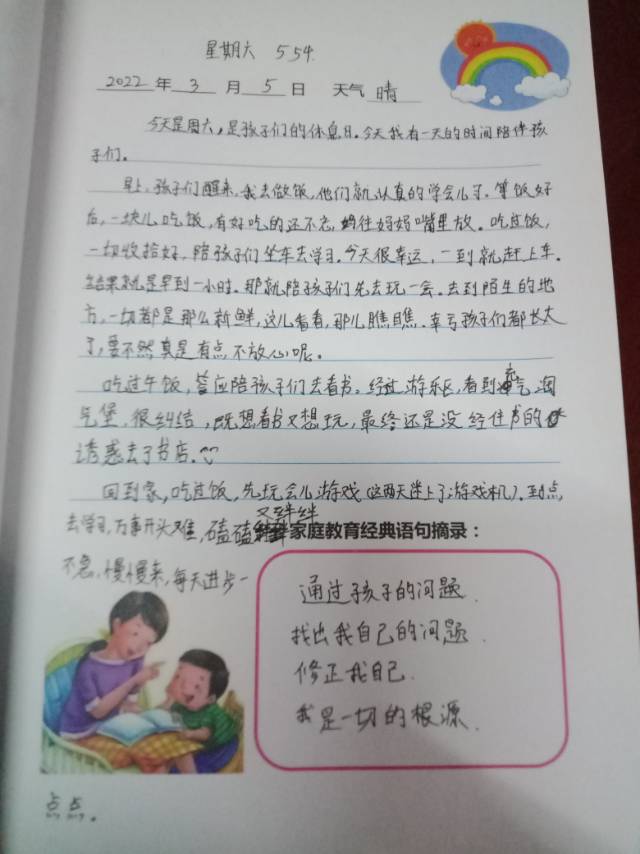 星期六 554.
2022 年 3 月 5 日 天气 晴
今天是周六,是孩子们的休息日。今天我有一天的时间陪伴孩
子们。
早上,孩子们醒来,我去做饭,他们就认真的学会儿了。等饭好
后,一块儿吃饭,有好吃的还不忘往妈妈嘴里放。吃过饭,
一切收拾好,陪孩子们坐车去学习。今天很幸运,一到就赶上车。
结果就是早到一小时。那就陪孩子们先去玩一会。去到陌生的地
方,一切都是那么新鲜,这儿看看,那儿瞧瞧。幸亏孩子们都长大
了,要不然真是有点不放心呢。
吃过午饭,答应陪孩子们去看书。经过游乐区,看到充气淘
气堡,很纠结,既想看书又想玩,最终还是没经住书的
诱惑去了书店。
回到家,吃过饭,先玩会儿游戏(这两天迷上了游戏机)。到点,
去学习,万事开头难,磕磕绊绊
家庭教育经典语句摘录:
不急,慢慢来,每天进步一
点点。
通过孩子的问题.
找出我自己的问题
修正我自己.
我是一切的根源.